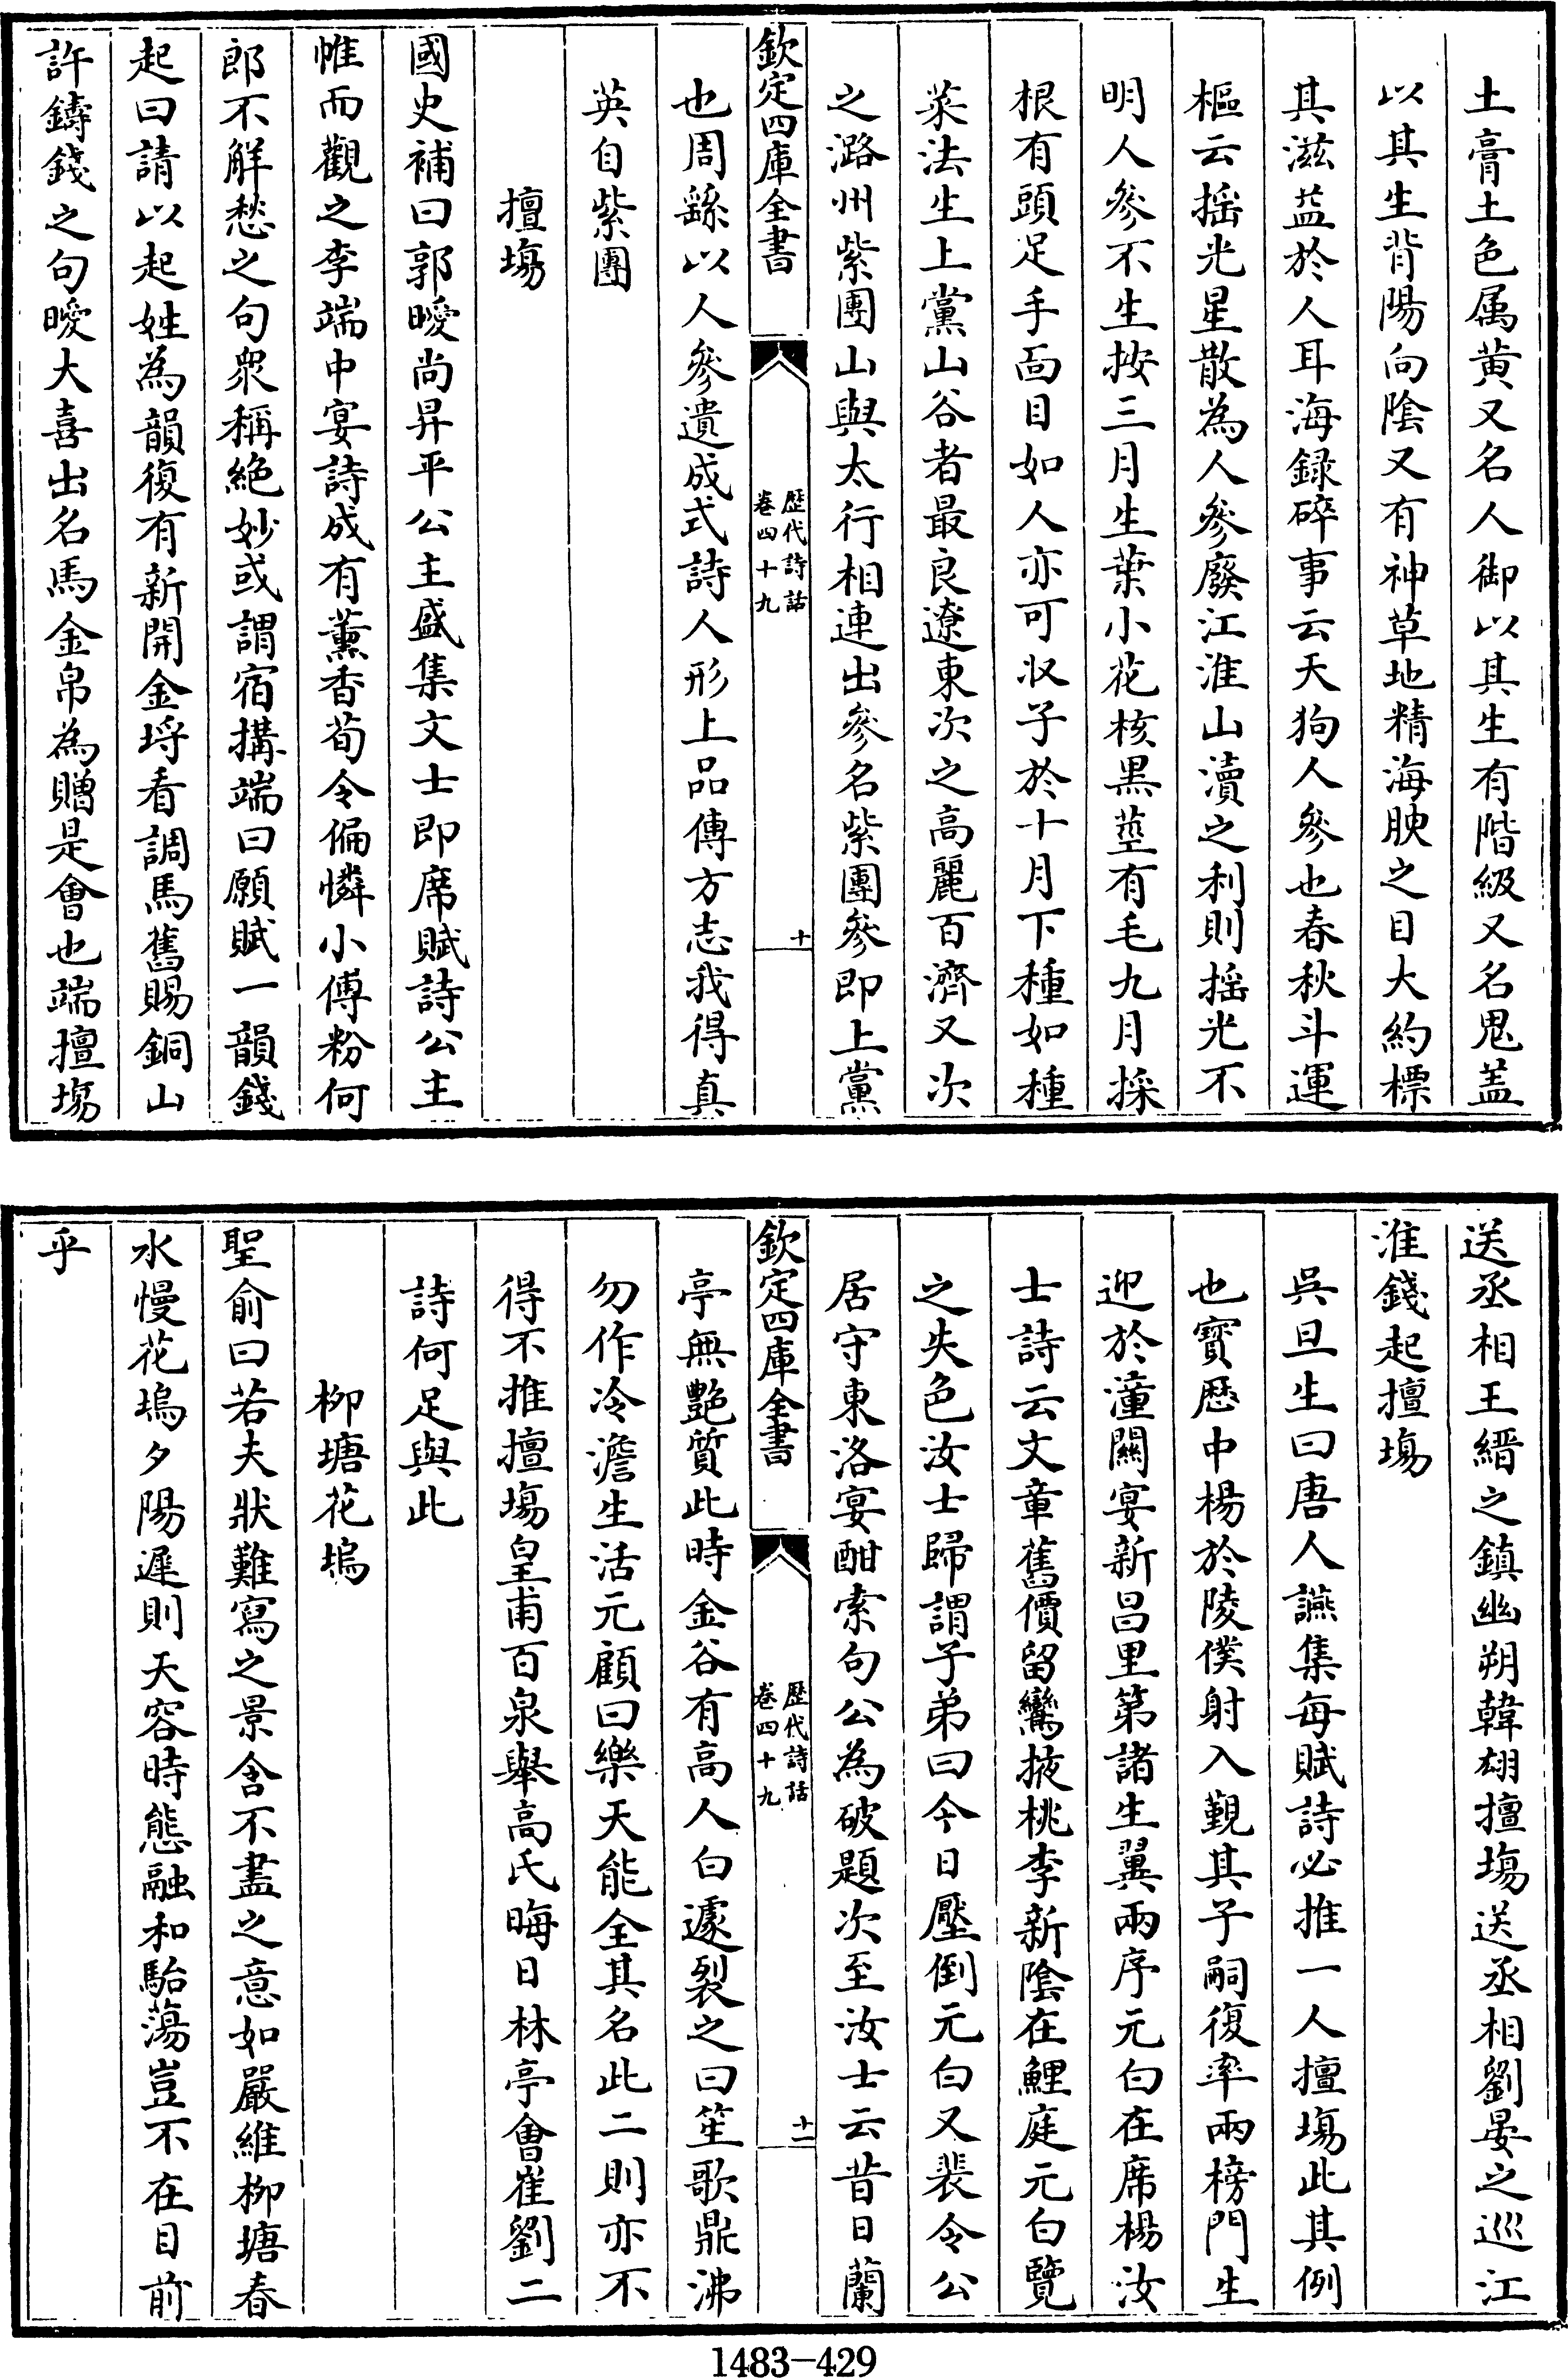 土膏土色属黄又名人御以其生有階級又名鬼盖
以其生背陽向陰又有神草地精海腴之目大約標
其滋益於人耳海録碎事云天狗人參也春秋斗運
樞云揺光星散為人參廢江淮山瀆之利則揺光不
明人參不生按三月生葉小花核黒莖有毛九月採
根有頭足手面目如人亦可収子於十月下種如種
菜法生上黨山谷者最良遼東次之高麗百濟又次
之潞州紫團山與太行相連出參名紫團參即上黨
欽定四庫全書
歴代詩話
卷四十九
十
也周繇以人參遺成式詩人形上品傳方志我得真
英自紫團
擅塲
國史補曰郭曖尚昇平公主盛集文士即席賦詩公主
帷而觀之李端中宴詩成有薫香荀令偏憐小傅粉何
郎不解愁之句衆稱絶妙或謂宿搆端曰願賦一韻錢
起曰請以起姓為韻復有新開金埒看調馬舊賜銅山
許鑄錢之句曖大喜出名馬金帛為贈是會也端擅塲
送丞相王縉之鎮幽朔韓翃擅塲送丞相劉晏之巡江
淮錢起擅塲
吳旦生曰唐人讌集每賦詩必推一人擅塲此其例
也寳歴中楊於陵僕射入覲其子嗣復率兩榜門生
迎於潼關宴新昌里第諸生翼兩序元白在席楊汝
士詩云文章舊價留鸞掖桃李新陰在鯉庭元白覽
之失色汝士歸謂子弟曰今日壓倒元白又裴令公
居守東洛宴酣索句公為破題次至汝士云昔日蘭
欽定四庫全書
歴代詩話
卷四十九
十一
亭無艶質此時金谷有高人白遽裂之曰笙歌鼎沸
勿作冷澹生活元顧曰樂天能全其名此二則亦不
得不推擅塲皇甫百泉舉高氏晦日林亭會崔劉二
詩何足與此
柳塘花塢
聖俞曰若夫狀難寫之景含不盡之意如嚴維柳塘春
水慢花塢夕陽遲則天容時態融和駘蕩豈不在目前
乎
1483-429